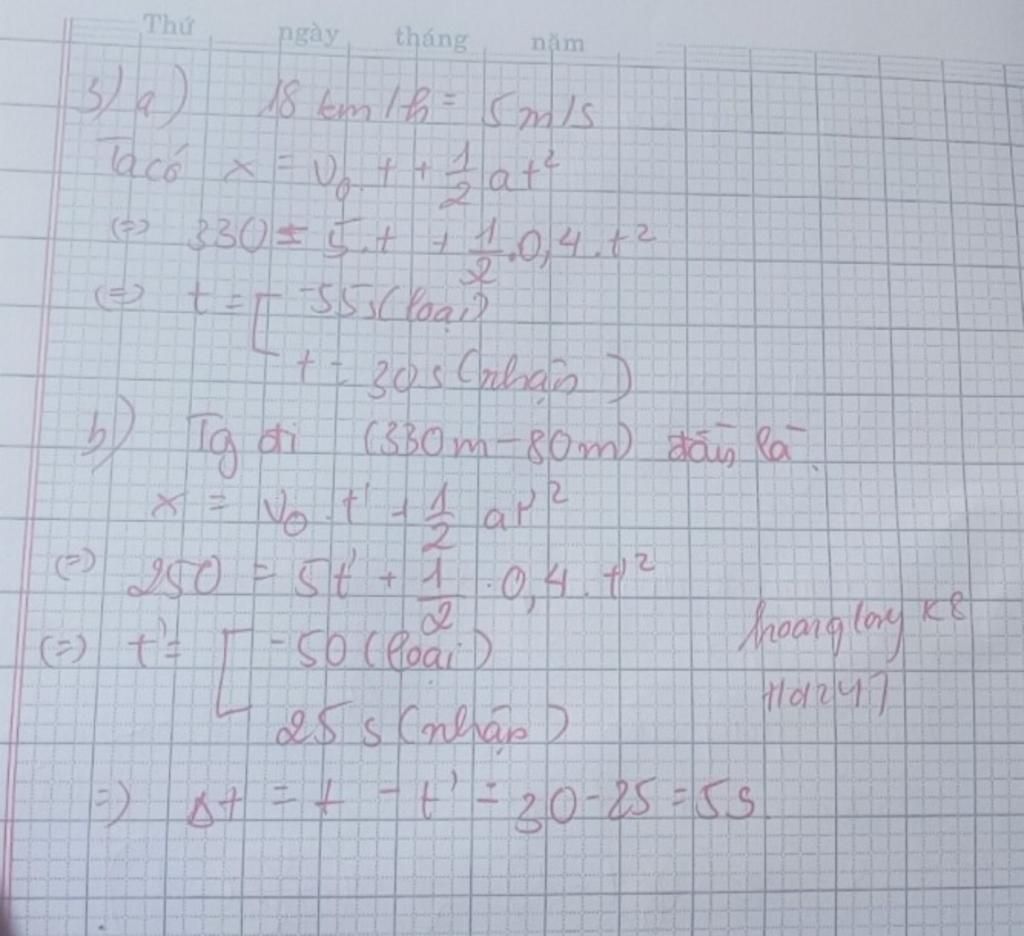 Thứ ngày tháng năm
3) a) 18 km/h = 5m/s
Ta có x = v₀ t + 1/2 at²
(=) 330 = 5.t + 1/2.0,4.t²
(=) t = [ -55s (loại)
t = 30s (nhận)
b) Tg đi (330m - 80m) đầu là
x = v₀.t' + 1/2 at'²
(=) 250 = 5t' + 1/2.0,4.t'²
(=) t' = [ -50 (loại)
25s (nhận)
hoanglong K8
Hd247
=) Δt = t - t' = 30 - 25 = 5s